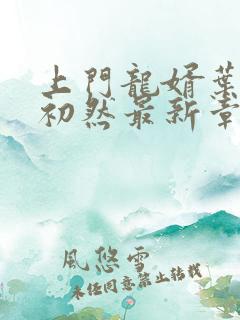 上門龍婿葉
初然最新章
風悠雪
未經同意禁止轉載